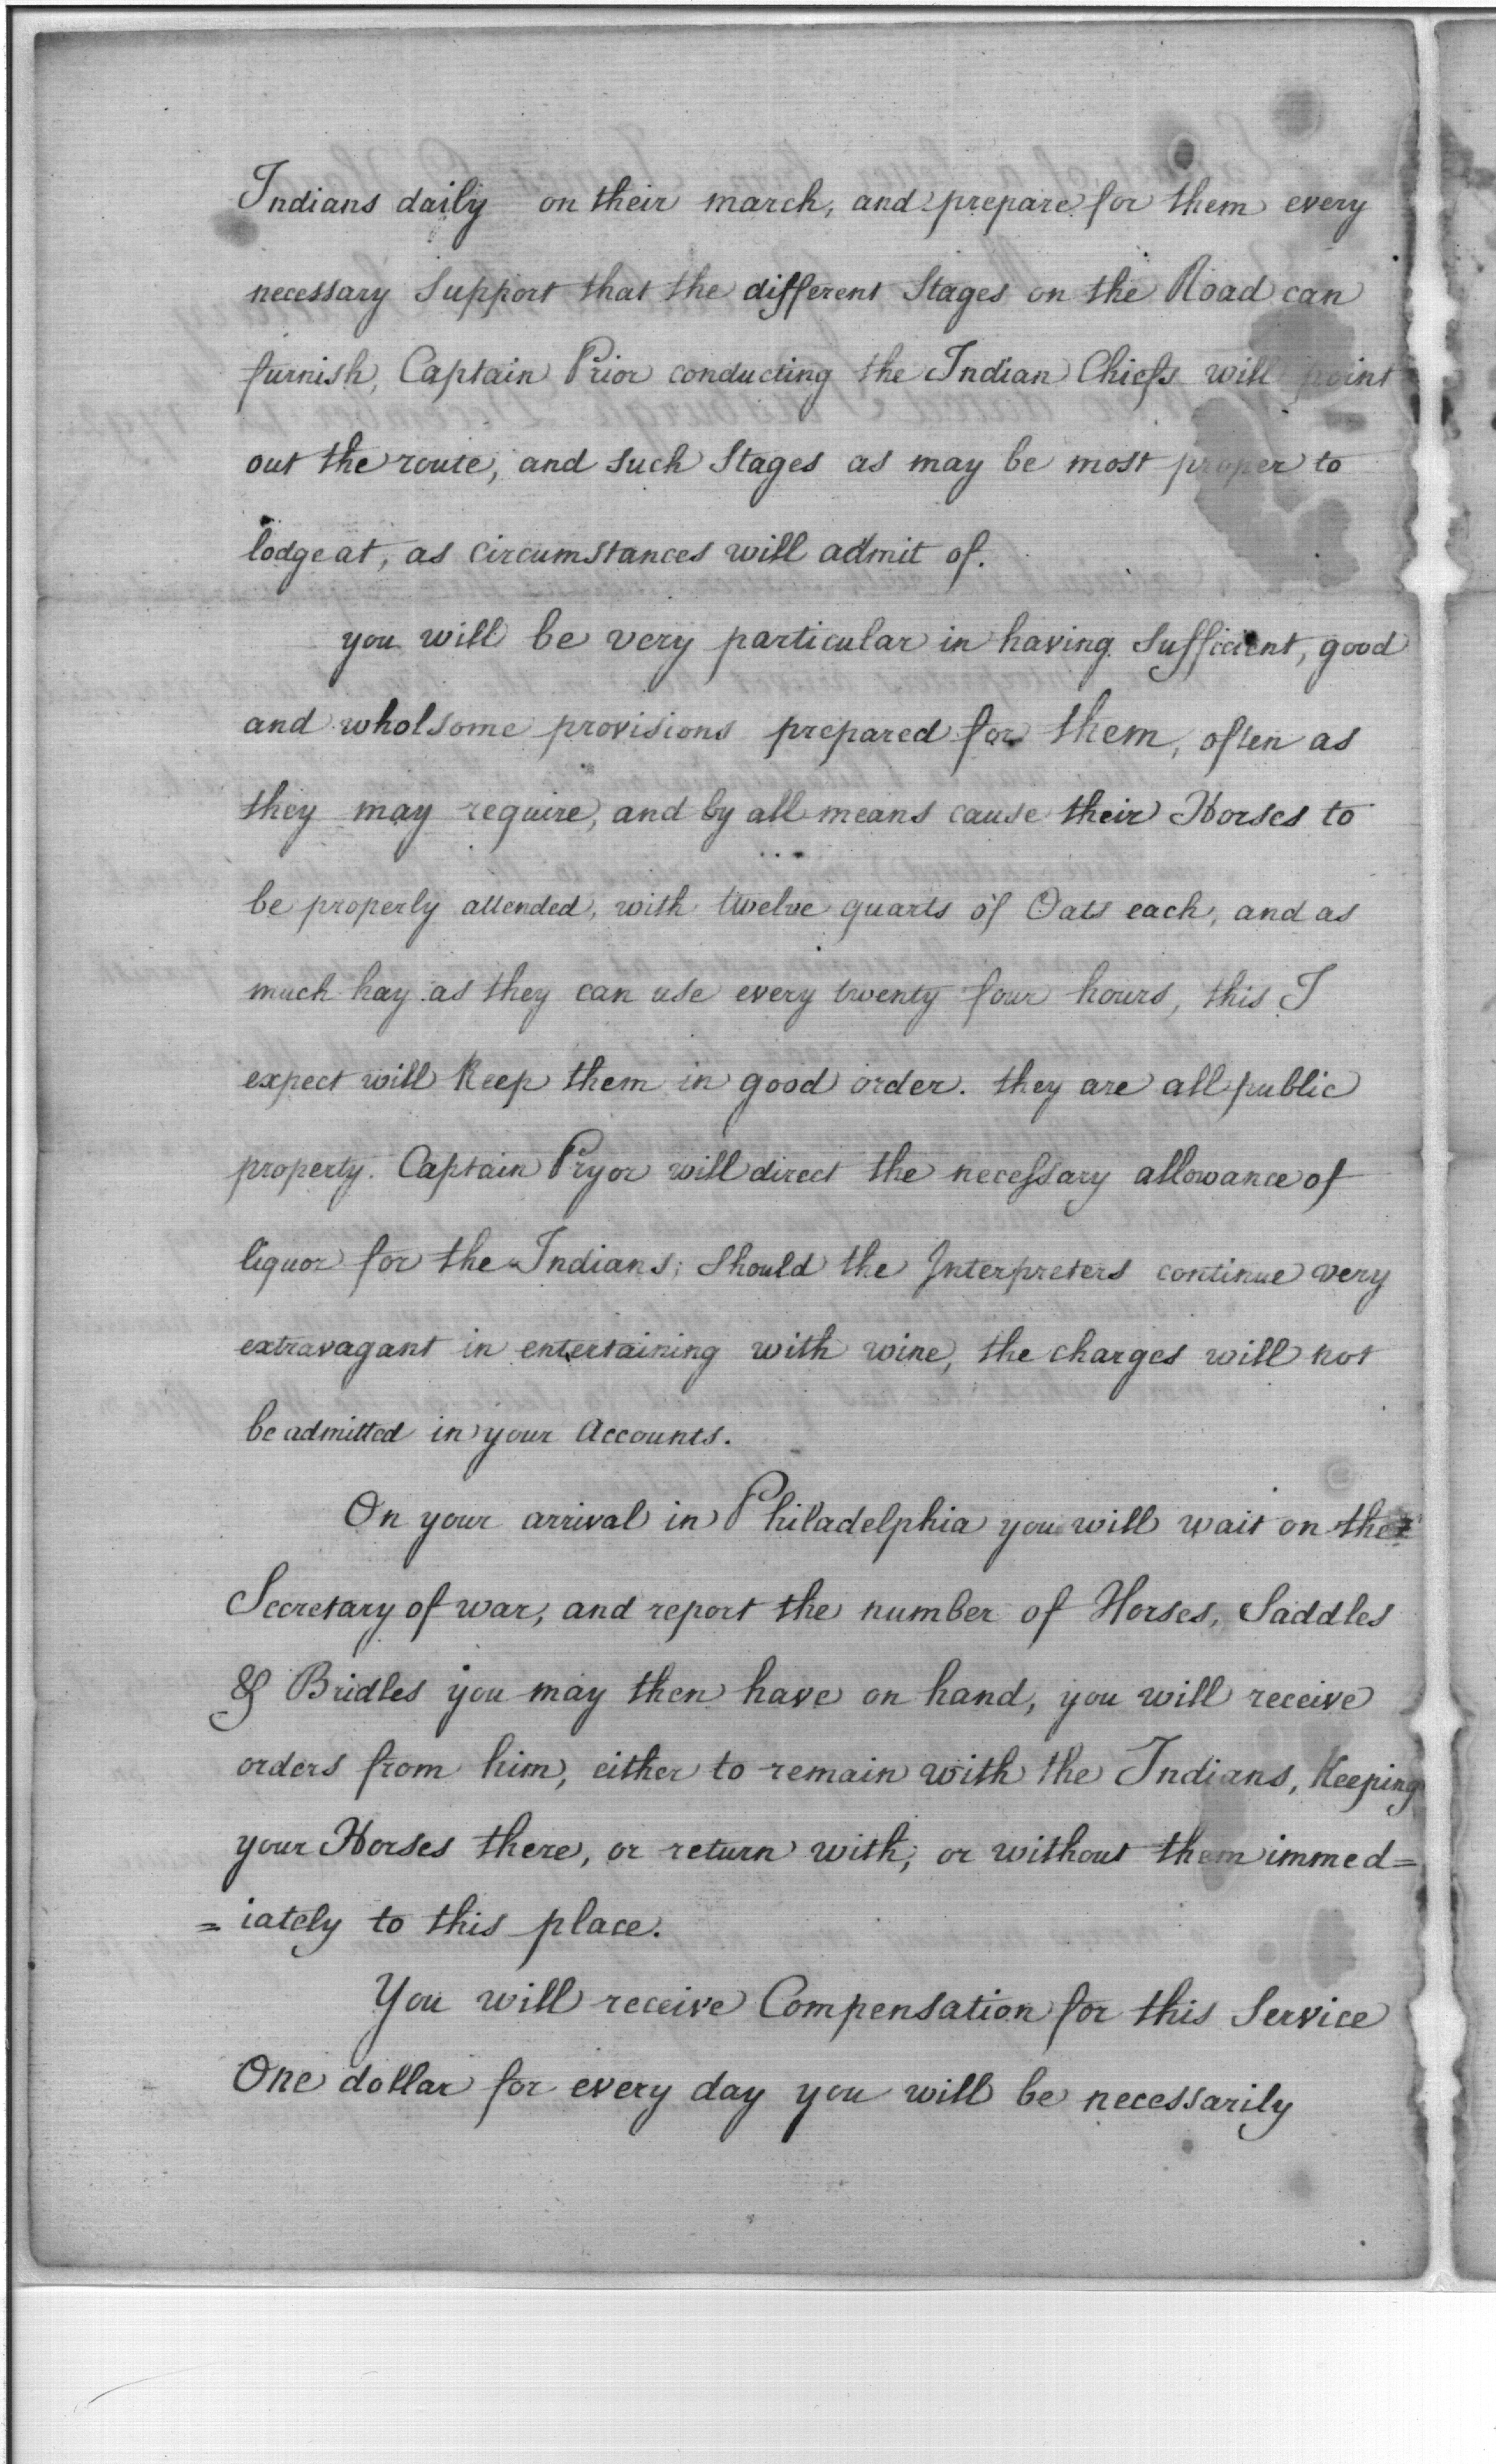 Indians daily on their march, and prepare for them every
necessary Support that the different Stages on the Road can
furnish, Captain Prior conducting the Indian Chiefs will point
out the route, and such Stages as may be most proper to
lodge at, as circumstances will admit of.
you will be very particular in having Sufficient, good
and wholsome provisions prepared for them, often as
they may require, and by all means cause their Horses to
be properly attended, with twelve quarts of Oats each, and as
much hay as they can use every twenty four hours, this I
expect will Keep them in good order. they are all public
property. Captain Pryor will direct the necessary allowance of
liquor for the Indians; Should the Interpreters continue very
extravagant in entertaining with wine, the charges will not
be admitted in your Accounts.
On your arrival in Philadelphia you will wait on the
Secretary of war, and report the number of Horses, Saddles
& Bridles you may then have on hand, you will receive
orders from him, either to remain with the Indians, Keeping
your Horses there, or return with, or without them immed=
=iately to this place.
You will receive Compensation for this Service
One dollar for every day you will be necessarily